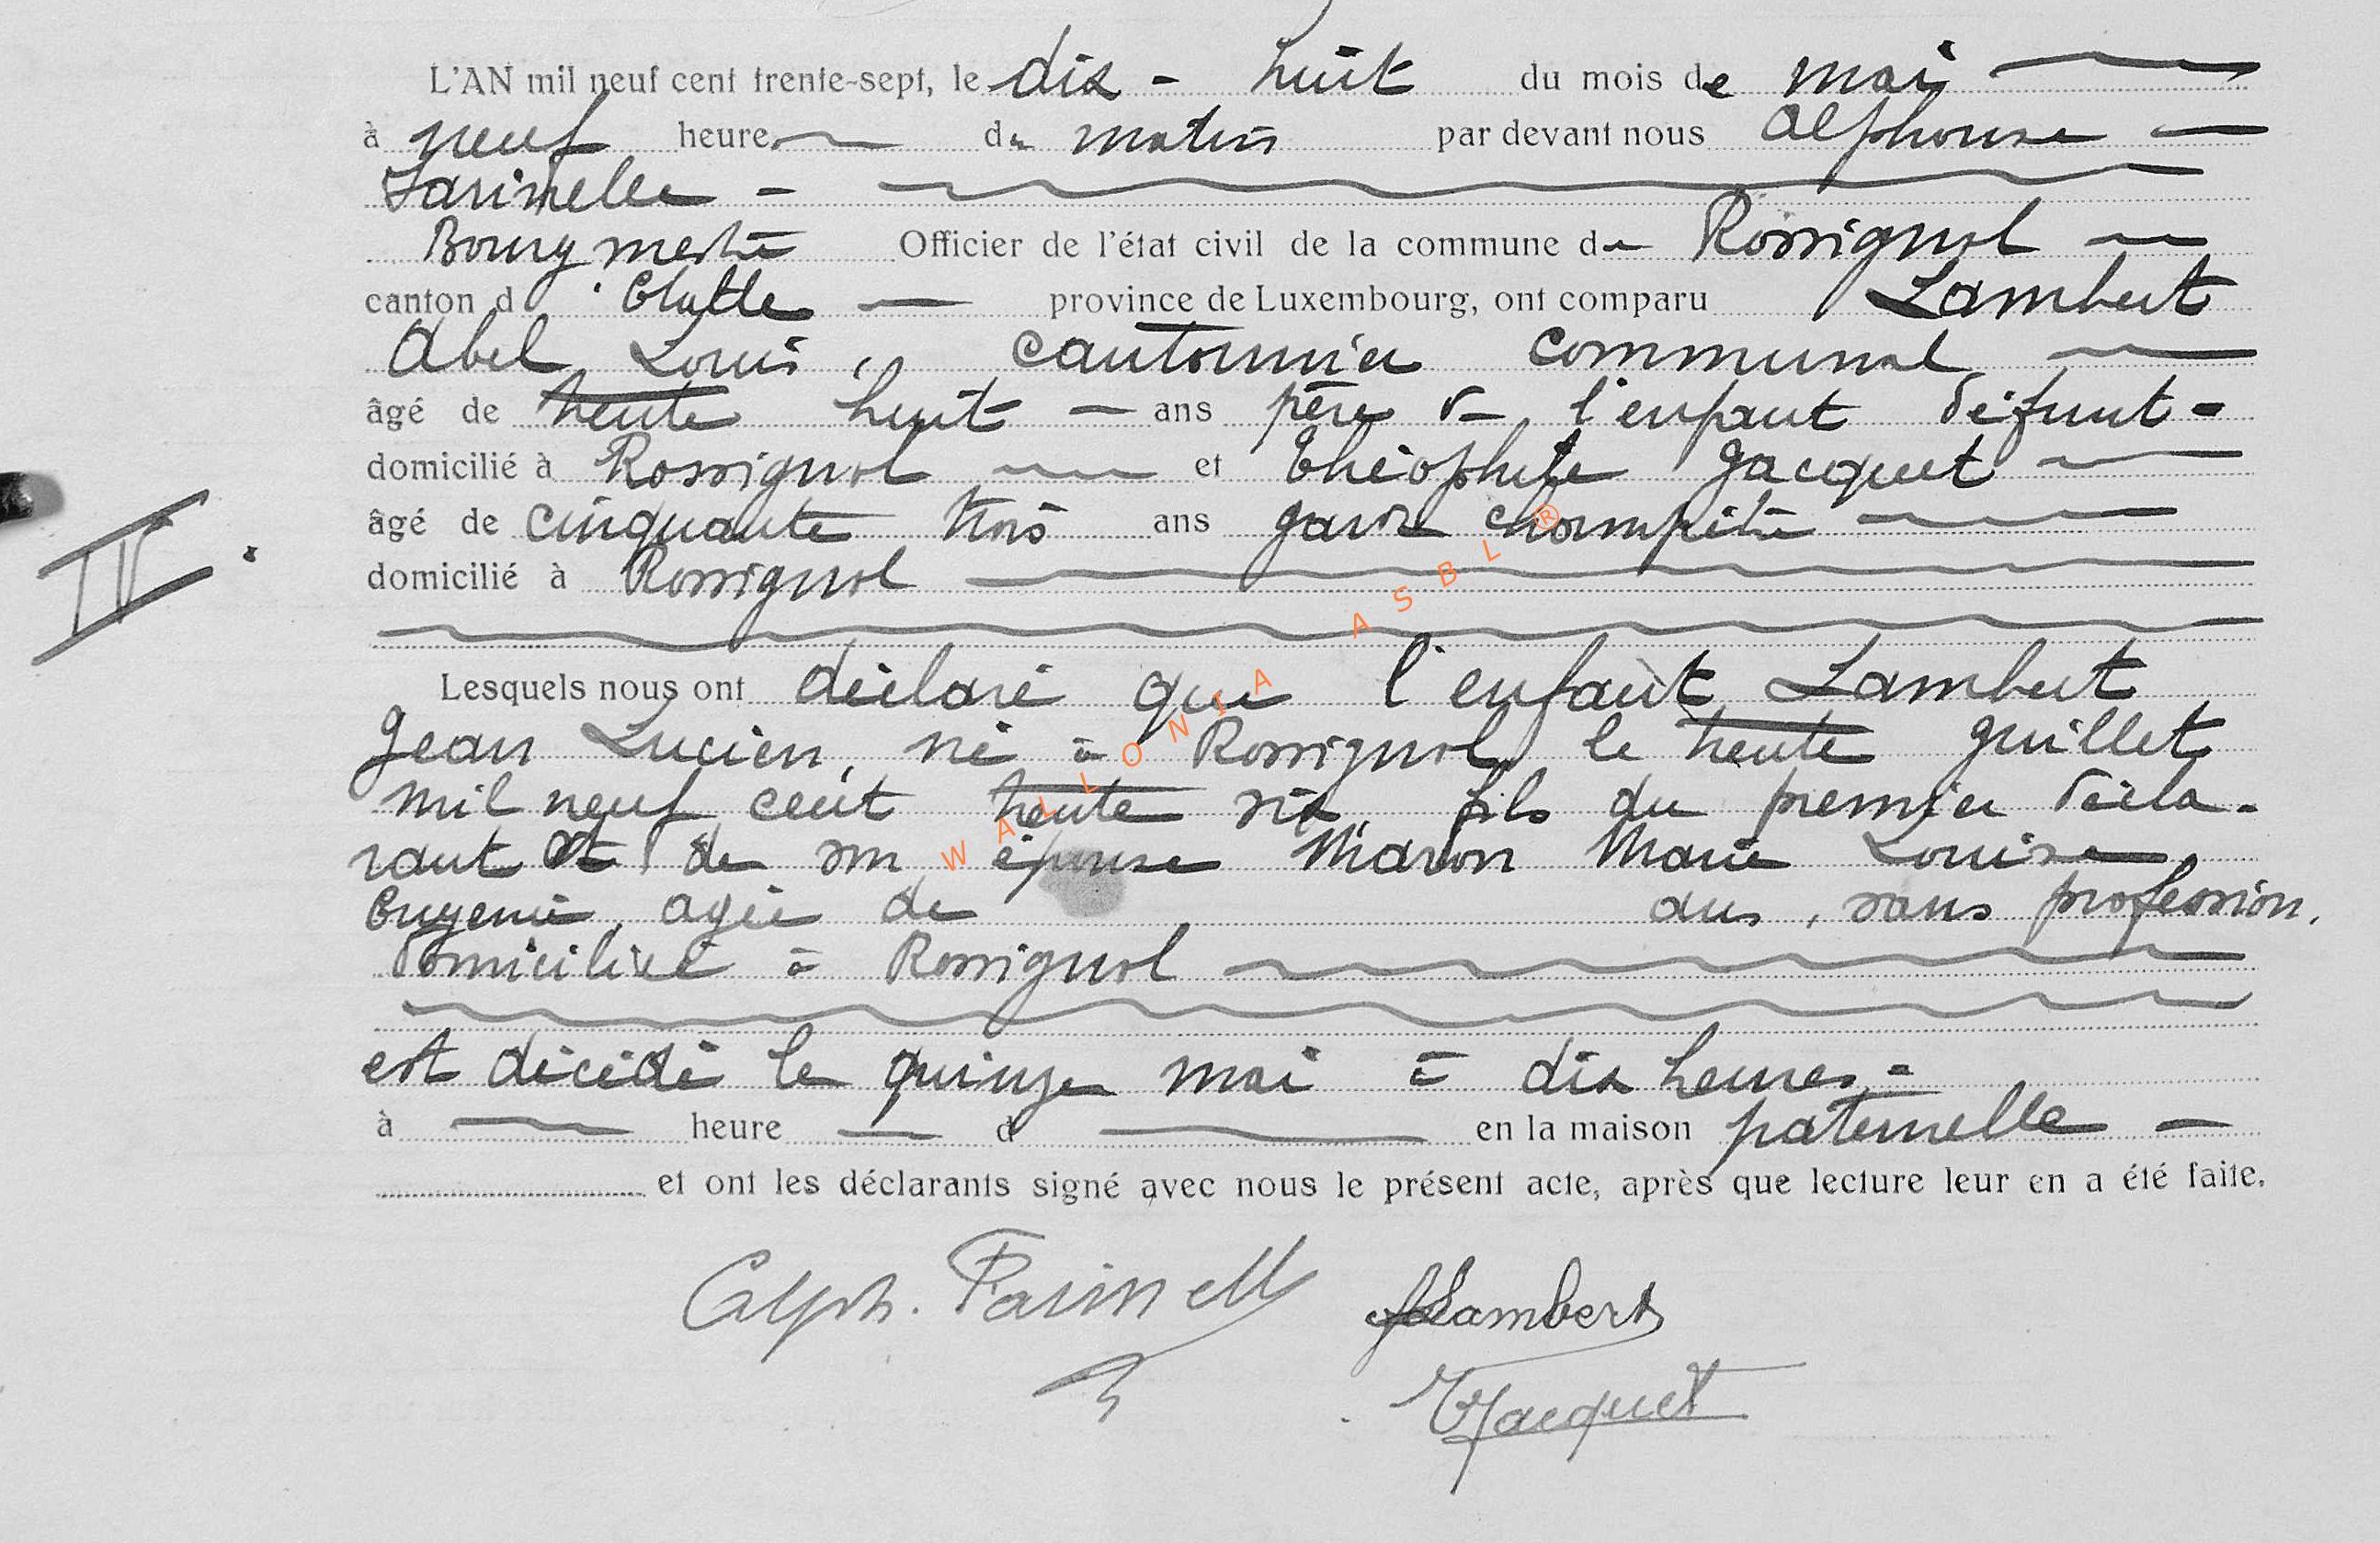 L'AN mil neuf cent trente-sept, le dix - huit du mois de mai
à neuf heure du matin par devant nous Alphonse
Bourgmestre Officier de l'état civil de la commune de Rossignol
canton d'Etalle province de Luxembourg, ont comparu Lambert
Abel Louis, cantonnier communal
âgé de trente huit ans père de l'enfant défunt -
domicilié à Rossignol et Théophile Jacquet
âgé de cinquante trois ans garde champêtre
domicilié à Rossignol
II.
Lesquels nous ont déclaré que l'enfant Lambert
Jean Lucien, né à Rossignol le trente juillet
mil neuf cent trente six, fils du premier décla-
rant et de son épouse Marie Louise
Eugenie agée de ans, sans profession,
domiciliée à Rossignol
est décédé le quinze mai à dix heures -
à heure d en la maison paternelle
et ont les déclarants signé avec nous le présent acte, après que lecture leur en a été faite.
Alph.
Lambert
Jacquet
WALLONIA ASBL ®